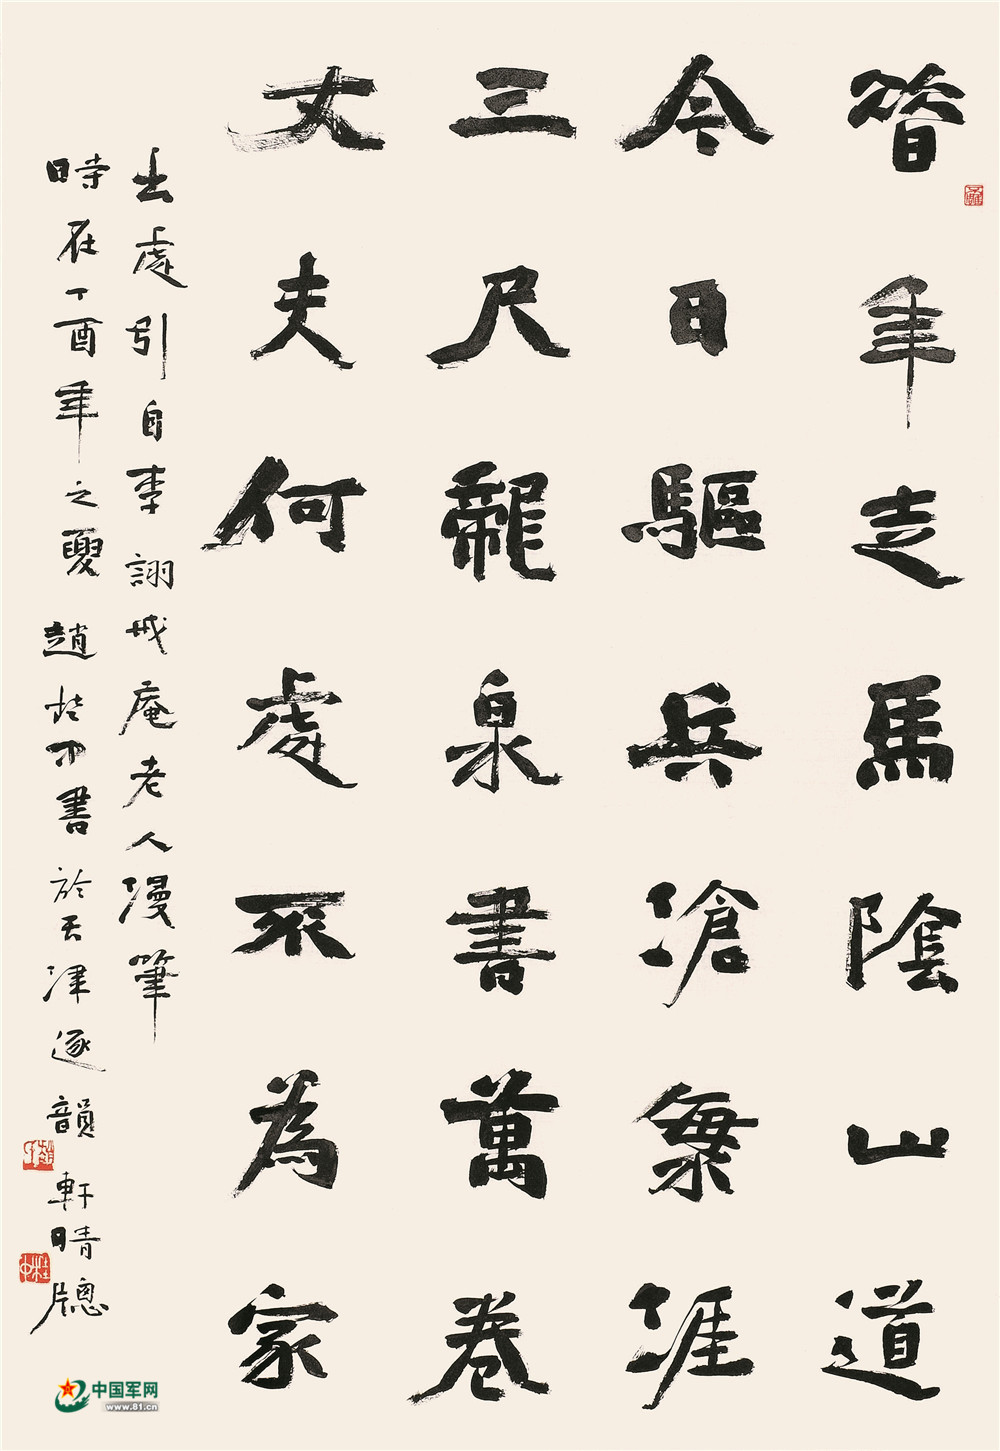 昔年走馬陰山道
今日驅兵滄海涯
三尺龍泉書萬卷
丈夫何處不為家
出處引自李詡戒庵老人漫筆
時在丁酉年之夏趙書於天津逐韻軒晴牕
中国军网
www.81.cn